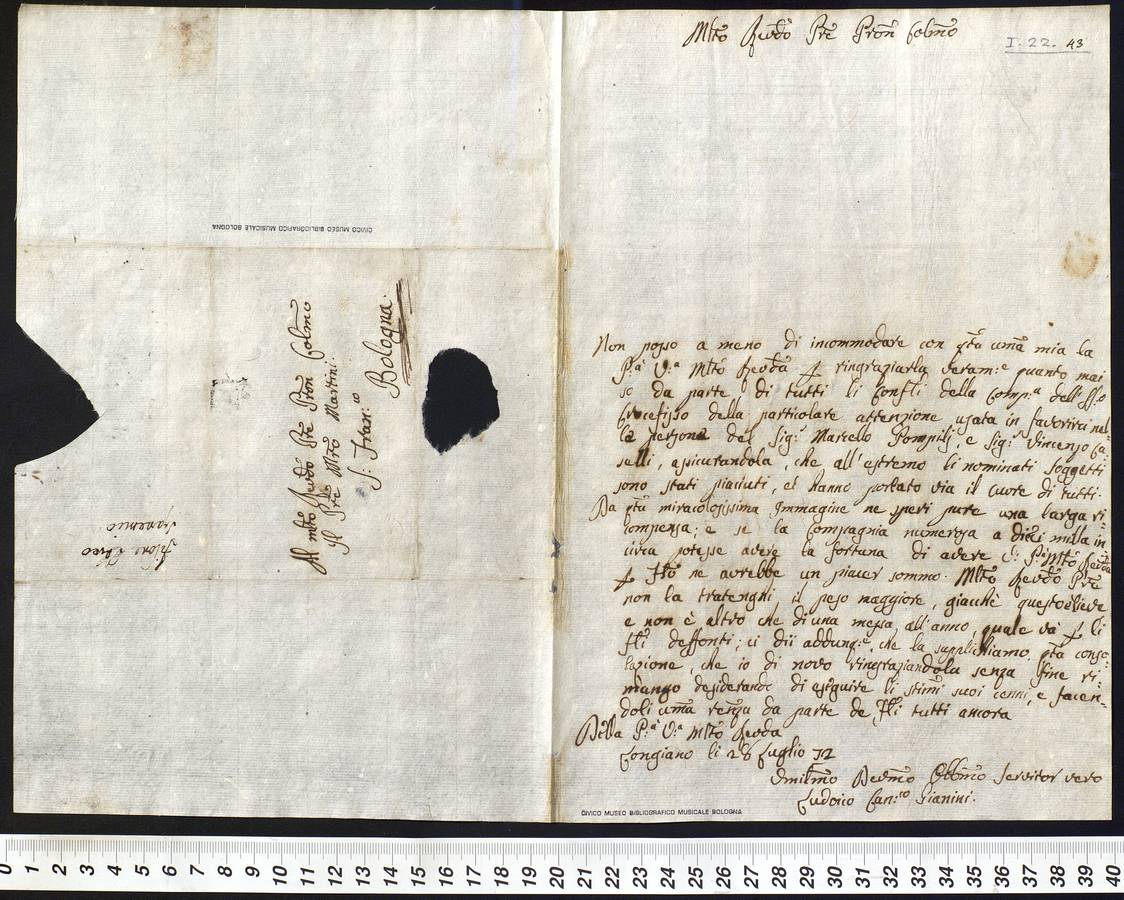 Mlto Revdo Pre Pron Colmo
I. 22. 43
Non posso a meno di incommodare con qta uma mia la
P.a V.a Mlto Revda p ringraziarla veram.e quanto mai
so da parte di tutti li Confli della Comp.a dell' SSo
Crocefisso della particolare attenzione usata in favorirci nel-
la persona del Sig.r Marcello Pompilj, e Sig.r Vincenzo Ca-
selli, assicurandola, che all'estremo li nominati soggetti
sono stati piaciuti, et hanno portato via il cuore di tutti.
Da qta miracolosissima Immagine ne speri pure una larga ri-
compensa; e se la Compagnia numerosa a dieci milla in
circa potesse avere la fortuna di avere V. P. Mlto Revda
p Fllo ne avrebbe un piacer sommo. Mlto Revdo Pre
non la tratenghi il peso maggiore, giacchè questo è lieve
e non è altro che di una messa all'anno, quale và p li
Flli deffonti; ci dii addunq.e, che la supplichiamo qta conso-
lazione, che io di novo ringraziandola senza fine ri-
mango desiderando di eseguire li stimi suoi cenni, e facen-
doli uma renza da parte de Flli tutti ancora
Della P.a V.a Mlto Revda
Longiano li 28 Luglio 72
Umilmo Devmo Obbmo Servitor vero
Ludovico Can.co Gianini.
Al mlto Revdo Pre Pron Colmo
Il Pre Mro Martini.
S. Fran.co
Bologna.
CIVICO MUSEO BIBLIOGRAFICO MUSICALE BOLOGNA
CIVICO MUSEO BIBLIOGRAFICO MUSICALE BOLOGNA
0 1 2 3 4 5 6 7 8 9 10 11 12 13 14 15 16 17 18 19 20 21 22 23 24 25 26 27 28 29 30 31 32 33 34 35 36 37 38 39 40